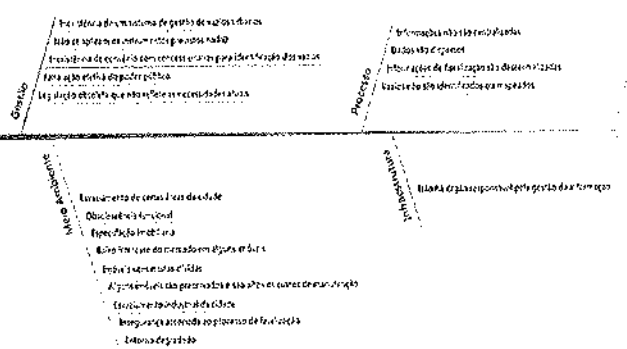 Gestão
Inexistência de um sistema de gestão de vazios urbanos
Não se aplicam os instrumentos previstos
Inexistência de convênio com concessionárias para identificação dos vazios
atuação efetiva do poder público
Legislação obsoleta que não reflete as necessidades atuais
Processo
Informações não são centralizadas
Dados são dispersos
Informações de fiscalização são descentralizadas
Vazios não são identificados ou mapeados
Meio Ambiente
Esvaziamento de certas áreas da cidade
Obsolescência funcional
Especulação imobiliária
Baixo interesse do mercado em alguns imóveis
Imóveis com muitas dívidas
Alguns imóveis são preservados e são altos os custos de manutenção
Esvaziamento industrial da cidade
Insegurança associada ao processo de favelização
Entorno degradado
Infraestrutura
Não há órgão responsável pela gestão da informação